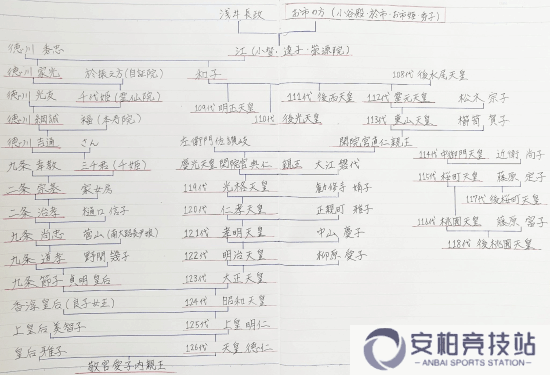 浅井長政 お市の方(小谷殿・於市・お市姫・秀子)
徳川 秀忠 江(小督・達子・崇源院)
徳川 家光 於振之方(自証院) 和子 108代 後水尾天皇
徳川 光友 千代姫(霊仙院) 111代 後西天皇 112代 霊元天皇 松木 宗子
109代 明正天皇 110代 後光天皇
徳川 綱誠 梅(本寿院) 113代 東山天皇 櫛笥 賀子
徳川 吉通 さん 左衛門佐讃岐 閑院宮直仁親王
114代 中御門天皇 近衛 尚子
九条 幸教 三千君(千姫) 慶光天皇 閑院宮典仁 親王 大江 磐代
115代 桜町天皇 藤原 定子
二条 宗基 家女房 119代 光格天皇 勧修寺 婧子
117代 後桜町天皇
二条 治孝 樋口 信子 120代 仁孝天皇 正親町 雅子
116代 桃園天皇 藤原 富子
九条 尚忠 菅山 121代 孝明天皇 中山 慶子
118代 後桃園天皇
九条 道孝 野間 幾子 122代 明治天皇 柳原 愛子
九条 節子 貞明皇后 123代 大正天皇
香淳皇后(良子女王) 124代 昭和天皇
上皇后 美智子 125代 上皇 明仁
皇后 雅子 126代 天皇 徳仁
敬宮愛子内親王
安柏竞技站
ANBAI SPORTS STATION